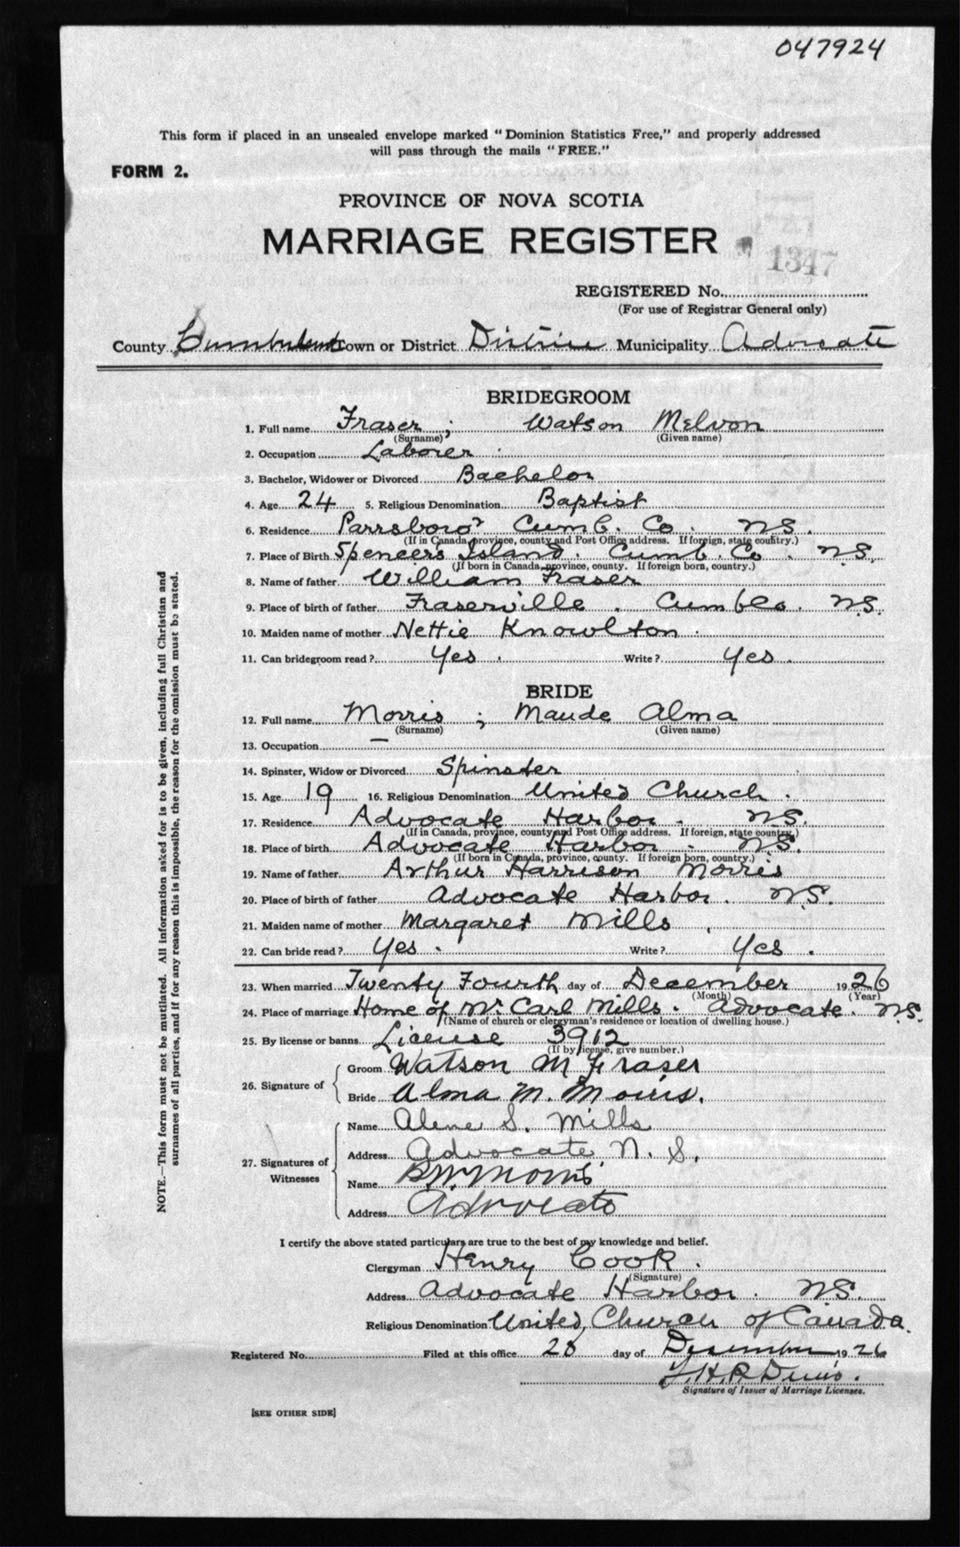 047924
This form if placed in an unsealed envelope marked "Dominion Statistics Free," and properly addressed
will pass through the mails "FREE."
FORM 2.
PROVINCE OF NOVA SCOTIA
MARRIAGE REGISTER
1347
REGISTERED No.
(For use of Registrar General only)
County Cumberland Town or District District Municipality Advocate
BRIDEGROOM
1. Full name Fraser ; Watson Melvon
(Surname) (Given name)
2. Occupation Laborer
3. Bachelor, Widower or Divorced Bachelor
4. Age 24 5. Religious Denomination Baptist
6. Residence Parrsboro Cumb. Co. N.S.
(If in Canada, province, county and Post Office address. If foreign, state country.)
7. Place of Birth Spencers Island. Cumb. Co. N.S.
(If born in Canada, province, county. If foreign born, country.)
8. Name of father William Fraser
9. Place of birth of father Fraserville. Cumb Co. N.S.
10. Maiden name of mother Nettie Knowlton.
11. Can bridegroom read? Yes. Write? Yes.
BRIDE
12. Full name Morris ; Maude Alma
(Surname) (Given name)
13. Occupation —
14. Spinster, Widow or Divorced Spinster
15. Age 19 16. Religious Denomination United Church.
17. Residence Advocate Harbor. N.S.
(If in Canada, province, county and Post Office address. If foreign, state country.)
18. Place of birth Advocate Harbor. N.S.
(If born in Canada, province, county. If foreign born, country.)
19. Name of father Arthur Harrison Morris
20. Place of birth of father Advocate Harbor. N.S.
21. Maiden name of mother Margaret Mills.
22. Can bride read? Yes. Write? Yes.
23. When married Twenty Fourth day of December 1926
(Month) (Year)
24. Place of marriage Home of Mr Carl Mills. Advocate. N.S.
(Name of church or clergyman's residence or location of dwelling house.)
25. By license or banns License 3912
(If by license, give number.)
26. Signature of
Groom Watson M Fraser
Bride Alma M. Morris.
27. Signatures of Witnesses
Name Alene S. Mills
Address Advocate N. S.
Name B.W. Morris
Address Advocate
I certify the above stated particulars are true to the best of my knowledge and belief.
Clergyman Henry Cook.
(Signature)
Address Advocate Harbor. N.S.
Religious Denomination United Church of Canada.
Registered No. Filed at this office 28 day of December 1926
Signature of Issuer of Marriage Licenses.
[SEE OTHER SIDE]
NOTE.—This form must not be mutilated. All information asked for is to be given, including full Christian and
surnames of all parties, and if for any reason this is impossible, the reason for the omission must be stated.